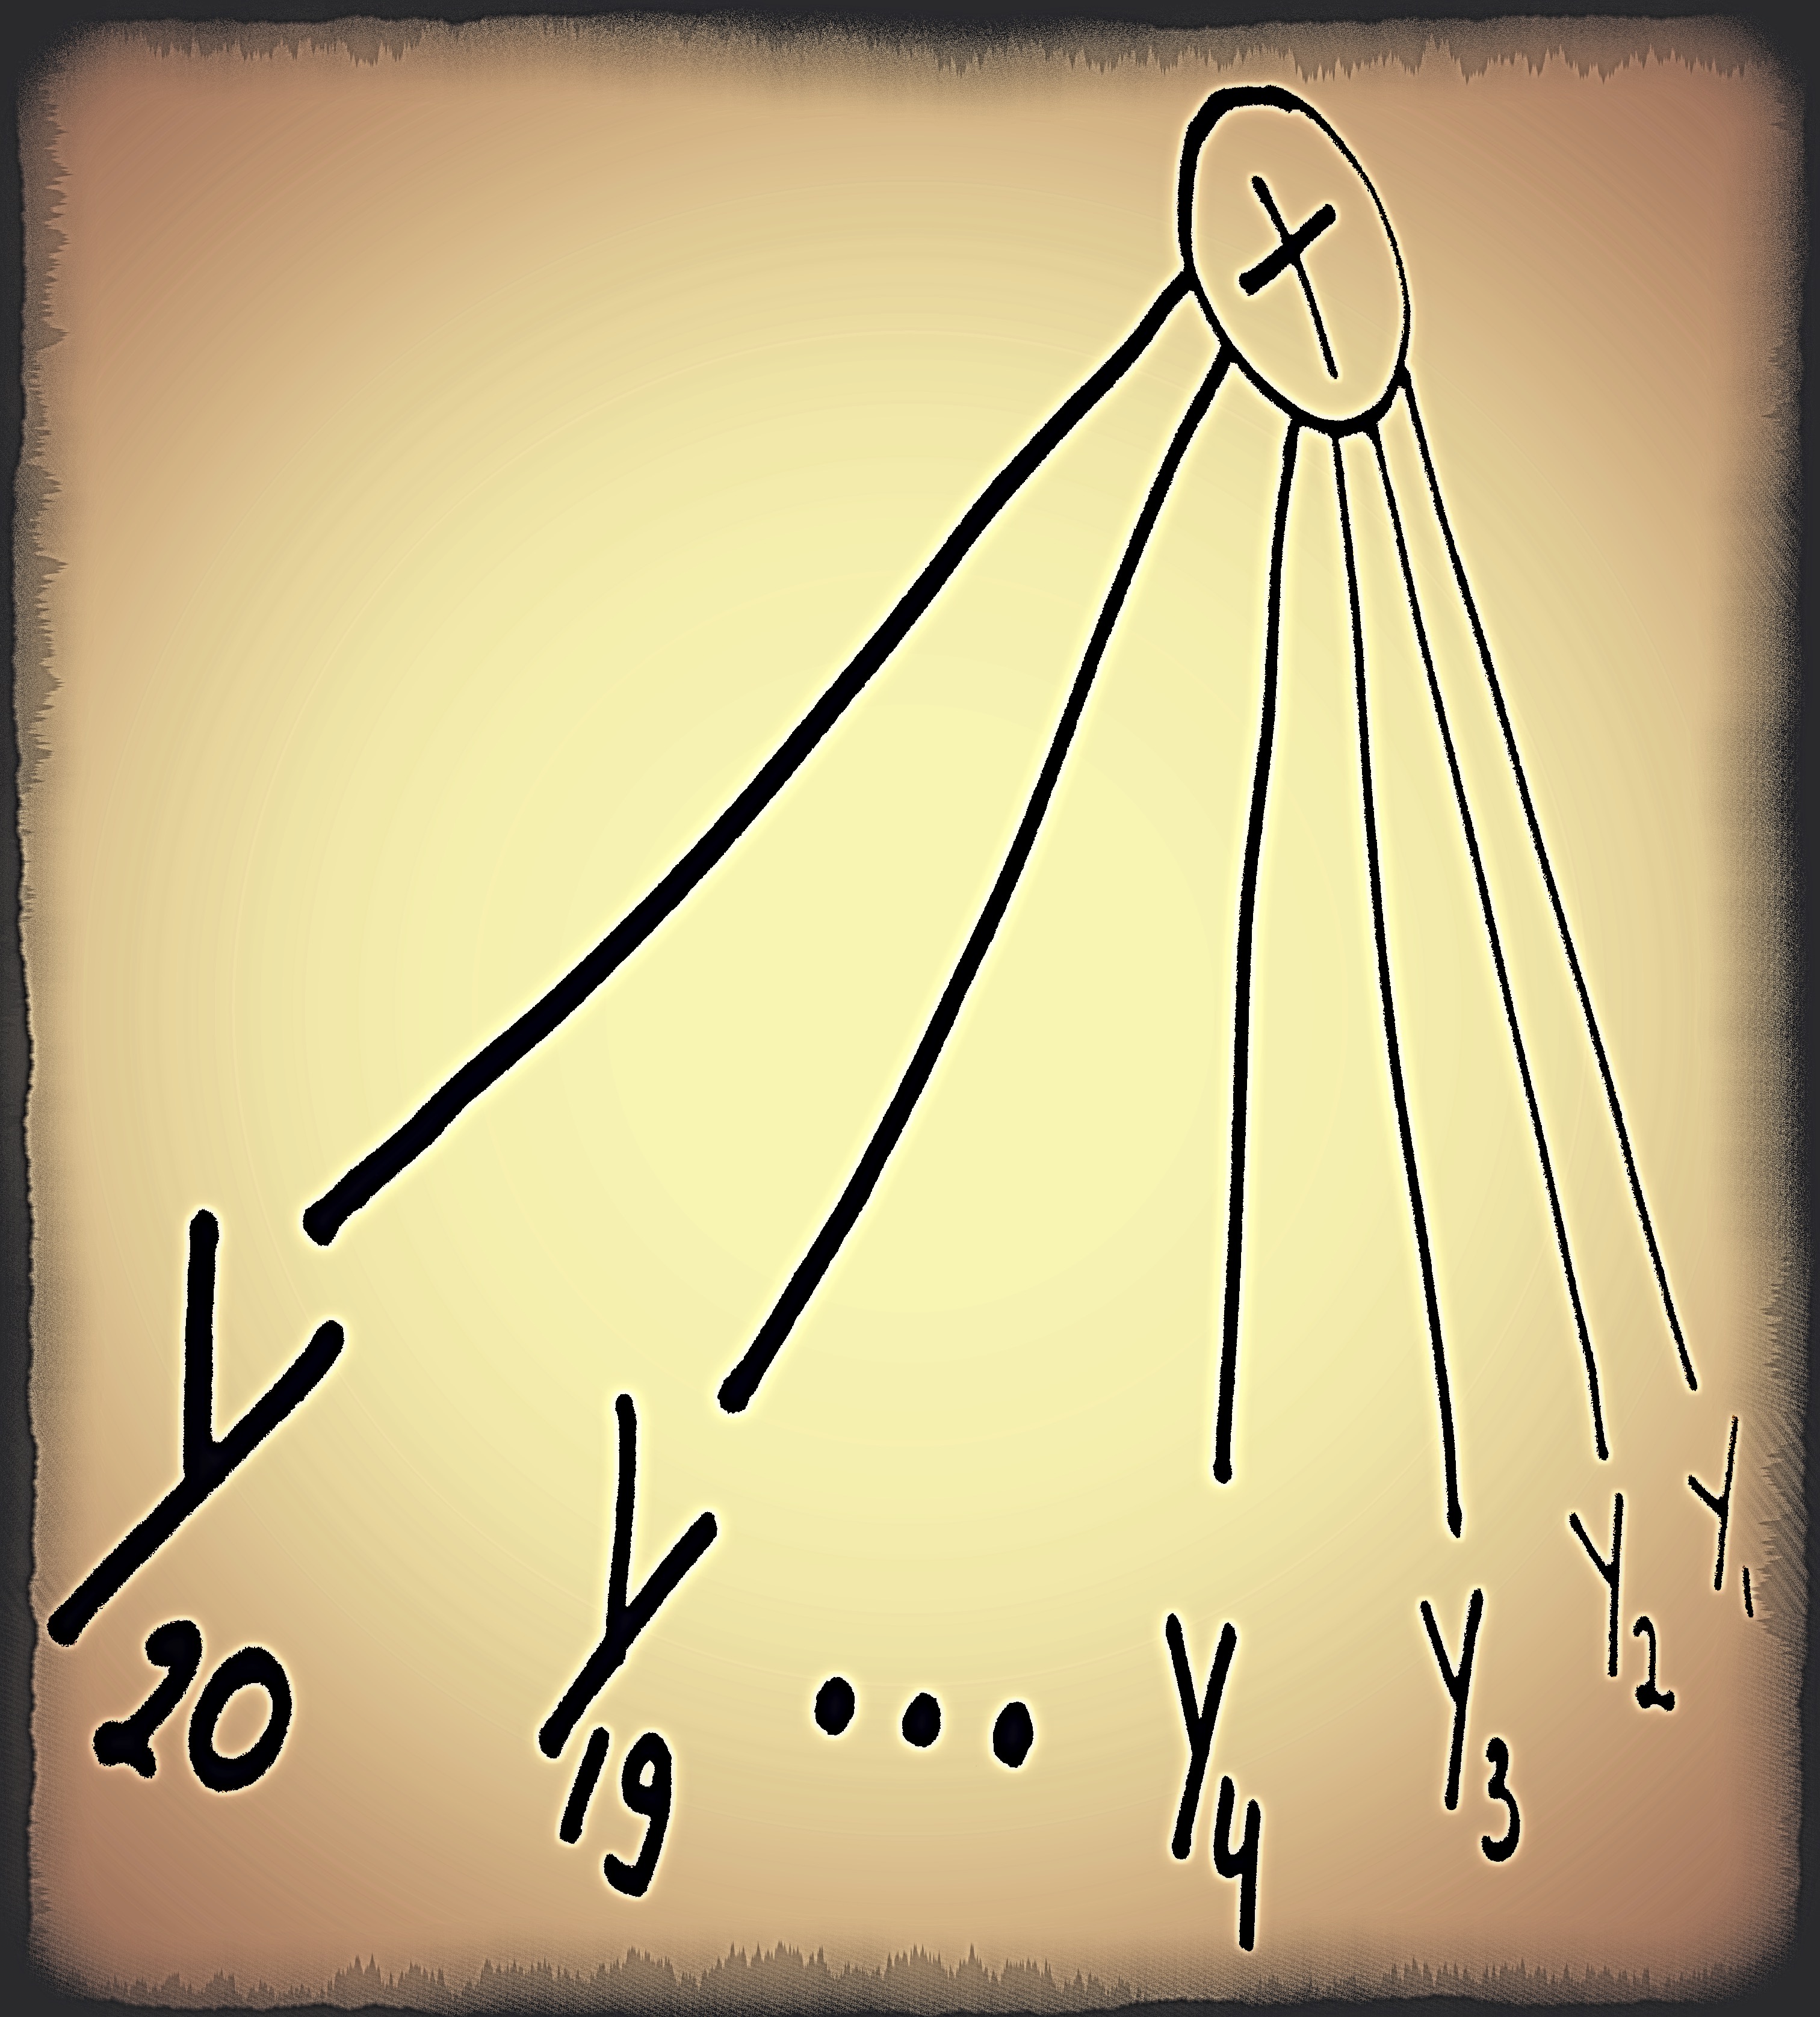 X
Y20 Y19 ... Y4 Y3 Y2 Y1